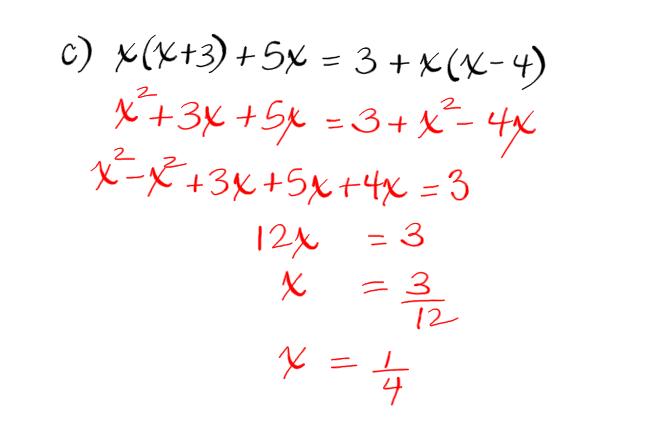 c) x(x+3)+5x = 3+x(x-4)
x²+3x+5x = 3+x²-4x
x²-x²+3x+5x+4x = 3
12x = 3
x = 3/12
x = 1/4